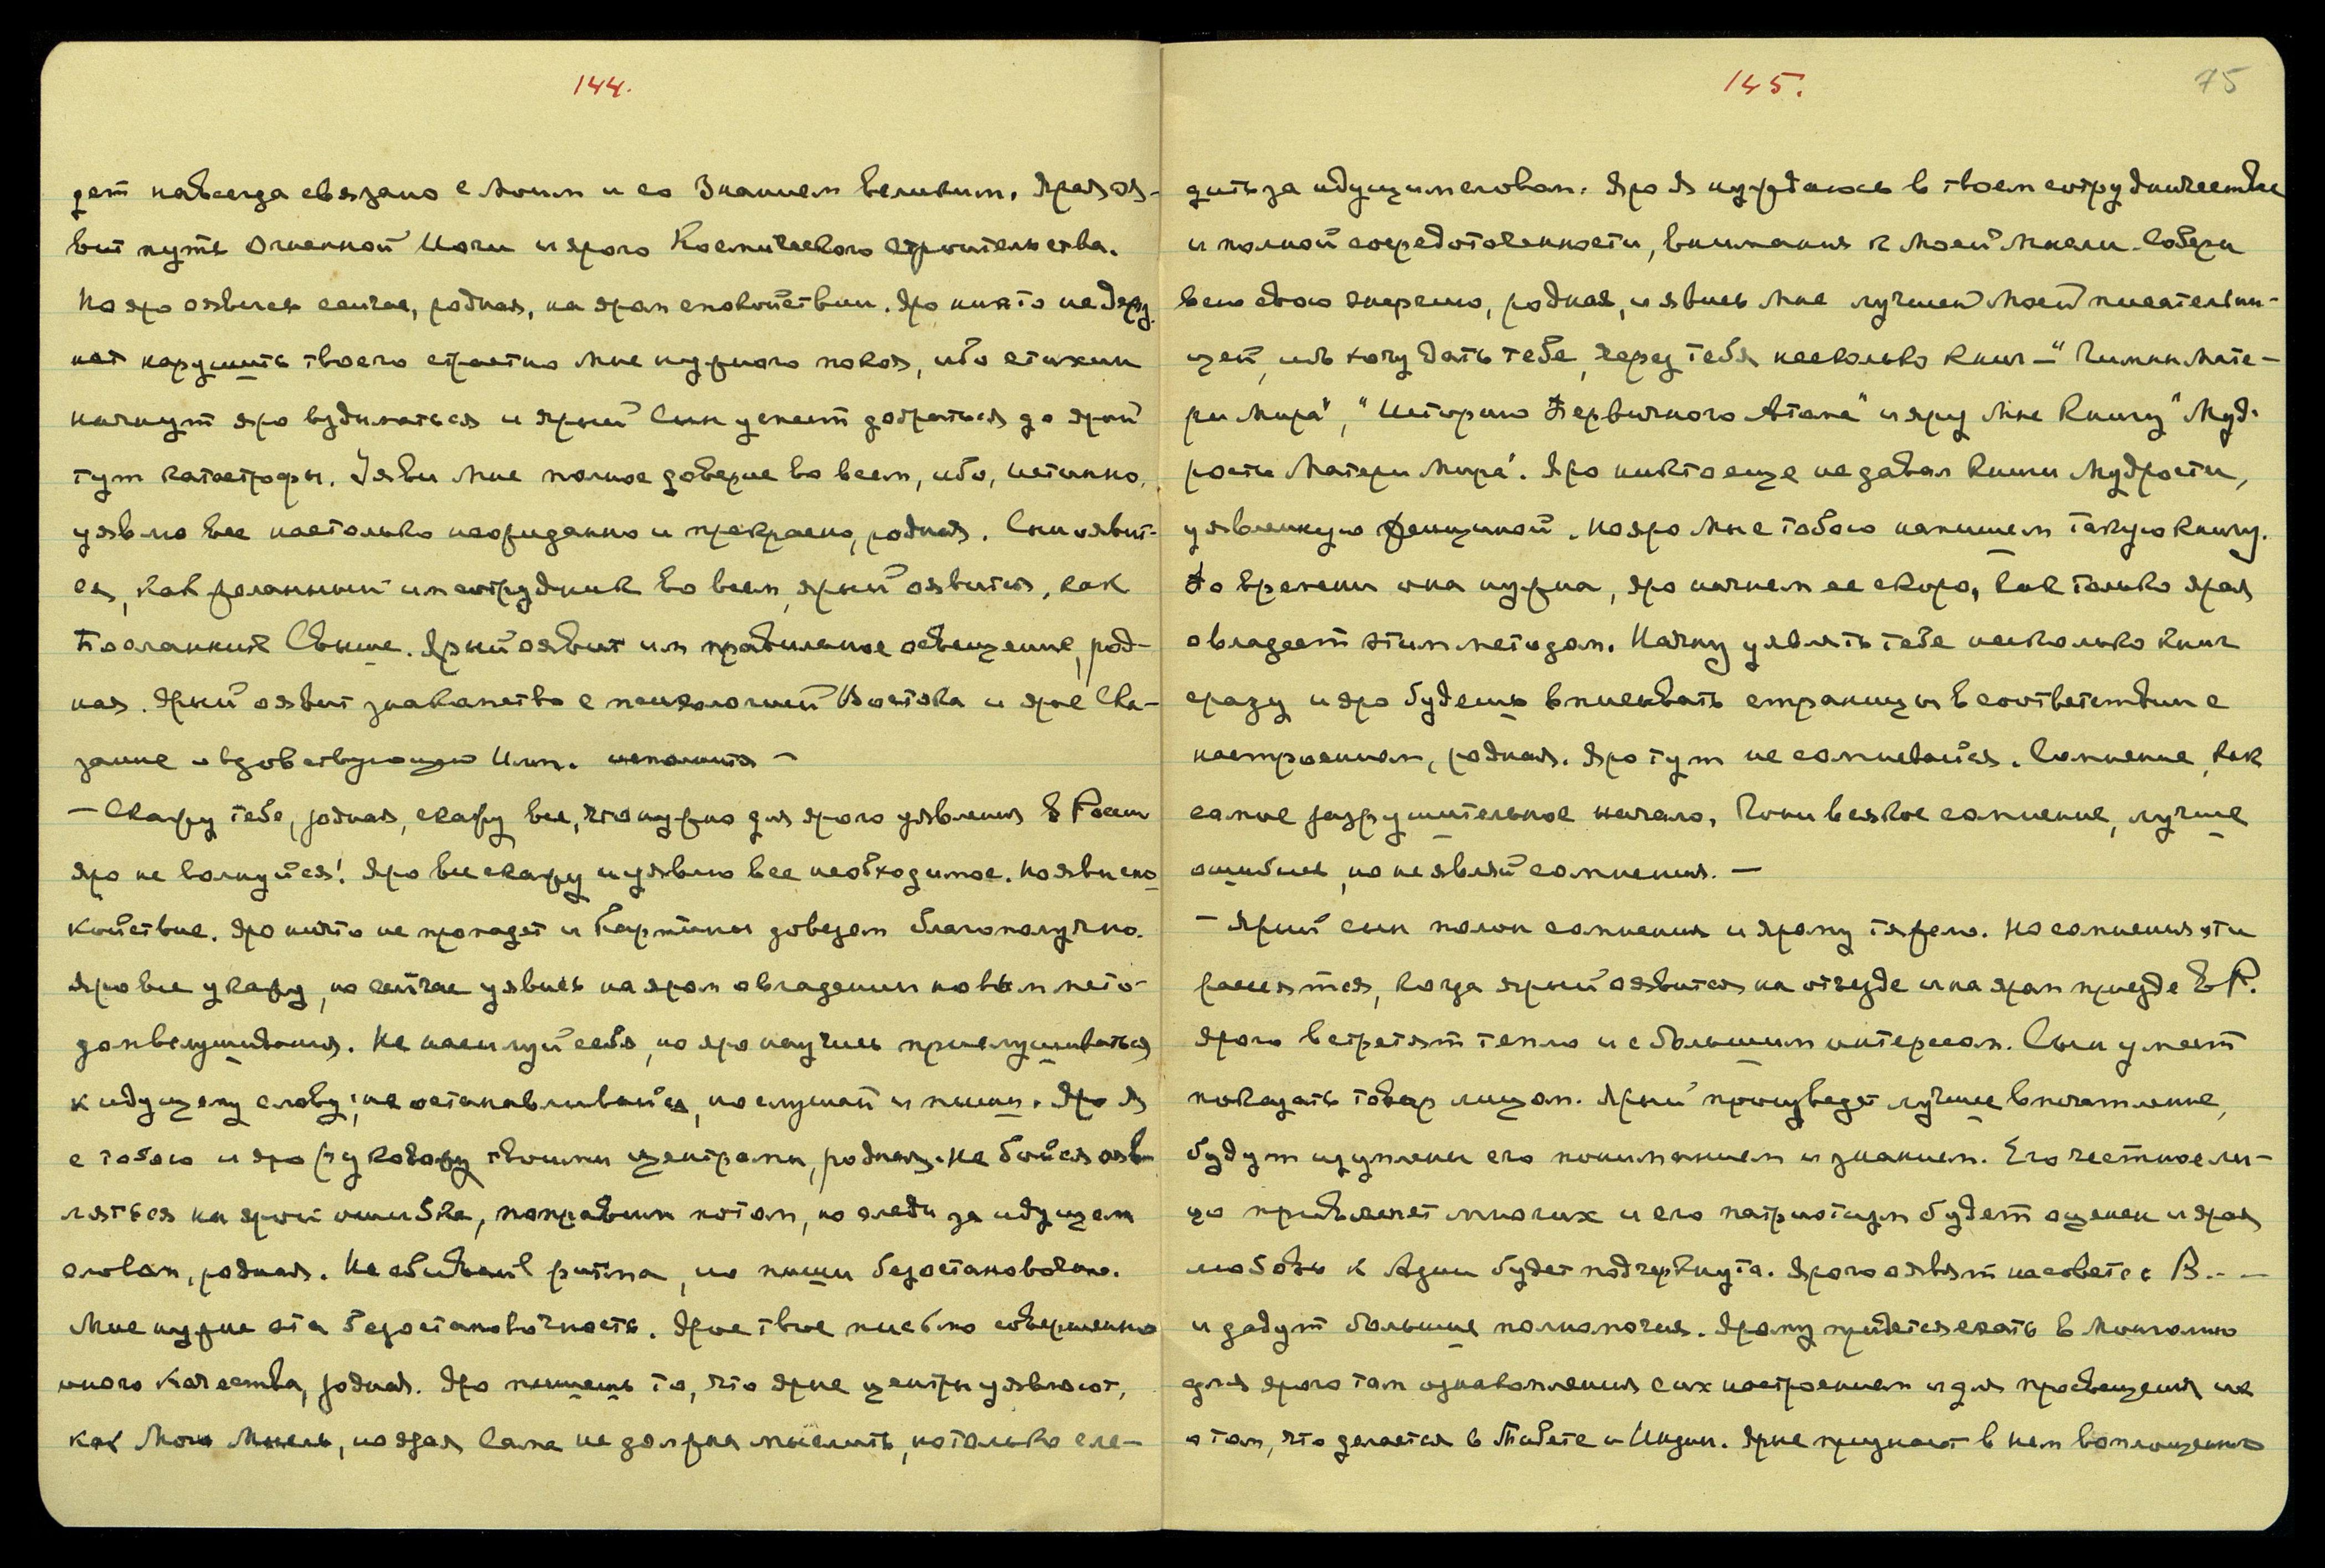 144.
дет навсегда связано с Моим и со Знанием великим. Ярая яв-
вит путь Огненной Йоги и ярого Космического строительства.
Но яро оявись сейчас, родная, на яром спокойствии. Яро никто не дерз-
нет нарушить твоего страстно Мне нужного покоя, ибо стихии
начнут яро вздыматься и ярый Сын успеет добраться до ярой
тут катастрофы. Уяви Мне полное доверие во всем, ибо, истинно,
уявлю все настолько неожиданно и прекрасно, родная. Сын оявит-
ся, как желанный им сотрудник во всем, ярый оявится, как
Посланник Свыше. Ярый оявит им правильное освещение, род-
ная. Ярый оявит знакомство с психологией Востока и ярое Ска-
зание о вдовствующей Имп. исполнится –
– Скажу тебе, родная, скажу все, что нужно для ярого уявления в России
Яро не волнуйся! Яро все скажу и уявлю все необходимое. Но яви спо-
койствие. Яро ничто не пропадет и картины довезем благополучно.
Яро все укажу, но сейчас уявись на яром овладении новым мето-
дом вслушивания. Не насилуй себя, но яро научись прислушиваться
к идущему слову; не останавливайся, но слушай и пиши. Яро Я
с тобою и яро руковожу твоими центрами, родная. Не бойся ояв-
ляться на ярой ошибке, поправим потом, но следи за идущем
словом, родная. Не сбивай ритма, но пиши безостановочно.
Мне нужна эта безостановочность. Ярое твое письмо совершенно
иного качества, родная. Яро пишешь то, что ярые центры уявляют,
как Мою Мысль, но ярая Сама не должна мыслить, но только сле-
145.
75
дить за идущим словом. Яро Я нуждаюсь в твоем сотрудничестве
и полной сосредоточенности, внимания к Моей Мысли. Собери
всю свою энергию, родная, и явись Мне лучшей Моей писательни-
цей, ибо хочу дать тебе, через тебя несколько книг – "Гимны Мате-
ри Мира", "Историю Первичного Атома" и яру Мне Книгу "Муд-
рости Матери Мира". Яро никто еще не давал Книги Мудрости,
уявленную женщиной. Но яро Мы с тобою напишем такую книгу.
По времени она нужна, яро начнем ее скоро, как только ярая
овладеет этим методом. Начну уявлять тебе несколько книг
сразу и яро будешь вписывать страницы в соответствии с
настроением, родная. Яро тут не сомневайся. Сомнение, как
самое разрушительное начало. Гони всякое сомнение, лучше
ошибись, но не являй сомнения. –
– Ярый сын полон сомнения и ярому тяжело. Но сомнения эти
рассеятся, когда ярый оявится на отъезде и на яром приезде в Р.
Ярого встретят тепло и с большим интересом. Сын умеет
показать товар лицом. Ярый произведет лучшее впечатление,
будут изумлены его пониманием и знанием. Его честное ли-
цо привлечет многих и его патриотизм будет оценен и ярая
любовь к Азии будет подчеркнута. Ярого оявят на совете с В. - -
и дадут большие полномочия. Ярому придется ехать в Монголию
для ярого там ознакомления с их настроением и для просвещения их
о том, что делается в Тибете и Индии. Ярые признают в нем воплощенного